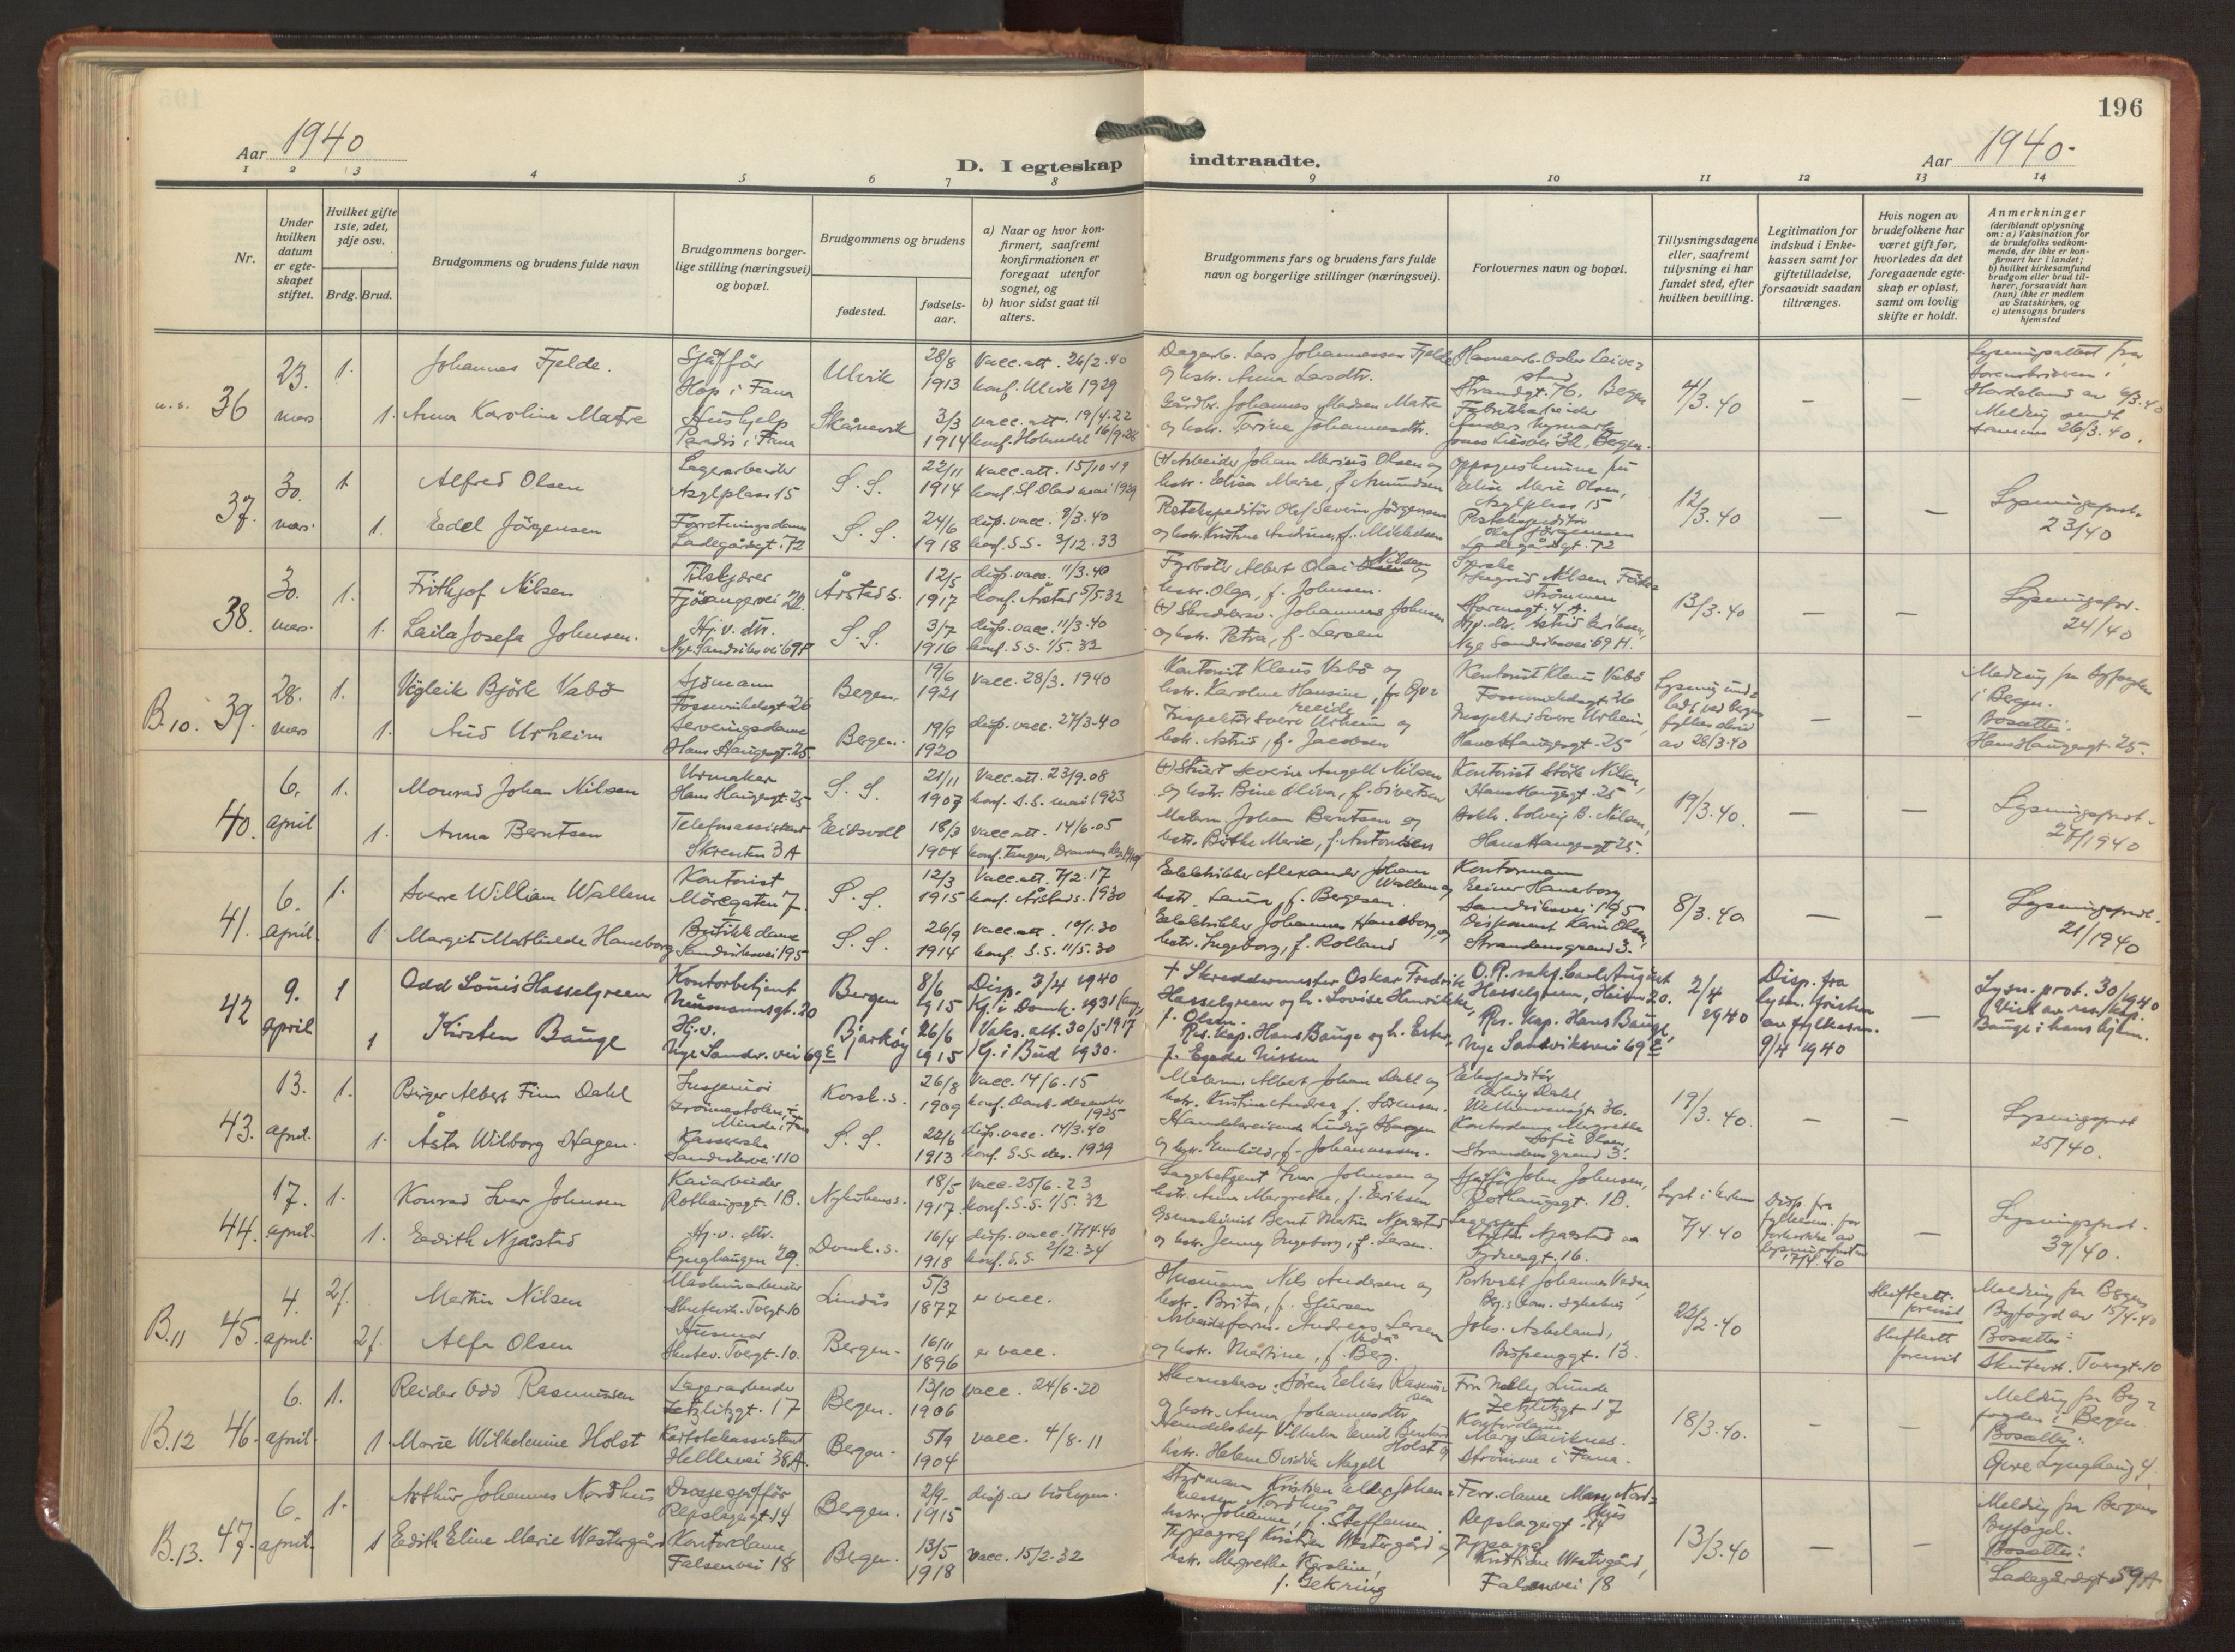 196
Aar 1940
D. I egteskap indtraadte.
Aar 1940-
1 2 3 4 5 6 7 8 9 10 11 12 13 14
Nr.
Under hvilken datum er egteskapet stiftet.
Hvilket gifte 1ste, 2det, 3dje osv.
Brdg. Brud.
Brudgommens og brudens fulde navn
Brudgommens borgerlige stilling (næringsvei) og bopæl.
Brudgommens og brudens
fødested.
fødselsaar.
a) Naar og hvor konfirmert, saafremt konfirmationen er foregaat utenfor sognet, og
b) hvor sidst gaat til alters.
Brudgommens fars og brudens fars fulde navn og borgerlige stillinger (næringsvei).
Forlovernes navn og bopæl.
Tillysningsdagene eller, saafremt tillysning ei har fundet sted, efter hvilken bevilling.
Legitimation for indskud i Enkekassen samt for giftetilladelse, forsaavidt saadan tiltrænges.
Hvis nogen av brudefolkene har været gift før, hvorledes da det foregaaende egteskap er opløst, samt om lovlig skifte er holdt.
Anmerkninger
(deriblandt oplysning om: a) Vaksination for de brudefolks vedkommende, der ikke er konfirmert her i landet; b) hvilket kirkesamfund brudgom eller brud tilhører, forsaavidt han (hun) ikke er medlem av Statskirken, og c) utensogns bruders hjemsted
u.s. 36
23. mars
1. Johannes Fjelde.
Sjåffør
Hop i Fana
Ulvik
28/8 1913
Vacc. att. 26/2.40
konf. Ulvik 1929
Dagarb. Lars Johannessen Fjelde
og hstr. Anna Larsdtr.
Strandgt. 76, Bergen
4/3.40
1. Anna Karoline Matre
Hushjelp
Paradis i Fana
Skånevik
3/3 1914
vacc. att. 19/4.22
Gårdbr. Johannes Madsen Matre
og hstr. Torine Johannesdtr.
Hordaland av 6/3.40
Melding sendt
samme 26/3.40.
37.
30. mars.
1. Alfred Olsen
Lagerarbeider
Asylplass 15
S. S.
22/11 1914
Vacc. att. 15/10.19
konf. St Olav mai 1929
(+) Arbeider Johan Marius Olsen og
hstr. Elisa Marie, f. Amundsen
Elise Marie Olsen,
Asylplass 15
12/3.40
Lysningsprot.
23/40
1. Edel Jörgensen
Forretningsdame
Ladegårdsgt. 72
S. S.
24/6 1918
disp. vacc. 9/3.40
konf. S.S. 3/12.33
Postekspeditör Olaf Severin Jörgensen
og hstr. Kristine Andrine, f. Mikkelsen
Postekspeditör
Olaf Jörgensen
Ladegårdsgt. 72
38.
30. mars.
1. Frithjof Nilsen
Tilskjærer
Fjösangervei 22.
Årstad s.
12/5 1917
disp. vacc. 11/3.40
konf. Årstad 5/5.32
Fyrböter Albert Olai Nilsen og
hstr. Olga, f. Johnsen.
13/3.40
Lysningsprot.
24/40
1. Laila Josefa Johnsen.
Hj. v. dtr.
Nye Sandviksvei 69H
S. S.
3/7 1916
disp. vacc. 11/3.40
konf. S.S. 1/5.32
(+) Skreddersv. Johannes Johnsen
og hstr. Petra, f. Larsen
Nye Sandviksvei 69 H.
B.10. 39.
28. mars
1. Vigleik Björk Vabö
Sjömann
Fosswinckelsgt 26
Bergen.
19/6 1921
Vacc. 28/3. 1940
Kontorist Klaus Vabö og
Kontorist Klaus Vabö
Fosswinckelsgt. 26
av 28/3.40
Melding fra byfogden
i Bergen.
Bosætter:
Hans Haugesgt. 25.
1. Aud Urheim
Serveringsdame
Hans Haugesgt. 25.
Bergen.
19/9 1920
disp. vacc. 27/3.40
Inspektör Sverre Urheim og
hstr. Astrid, f. Jacobsen
Inspektör Sverre Urheim
Hans Haugesgt. 25
40.
6. april
1. Monrad Johan Nilsen
Urmaker
Hans Haugesgt. 25
S. S.
21/11 1907
Vacc. att. 23/9.08
konf. S.S. mai 1923
(+) Stuert Severin Angell Nilsen
og hstr. Bine Oliva, f. Sivertsen
Hans Haugesgt. 25
19/3.40.
Lysningsprot.
27/1940
1. Anna Berntsen
Telefonassistent
Skrenten 3A
Eidsvoll
18/3 1904
Vacc. att. 14/6.05
Malerm. Johan Berntsen og
hstr. Birthe Marie, f. Antonisen
Hans Haugesgt 25.
41.
6. april.
1. Sverre William Wallem
Kontorist
Möregaten 7.
S. S.
12/3 1915
Vacc. att. 7/2.17
konf. Årstad s. 1930
Elektriker Alexander Johan
Wallem og
hstr. Laura, f. Bergesen.
Kontormann
Einar Haneborg
Sandviksvei 195
8/3.40
Lysningsprot.
21/1940
1 Margit Mathilde Haneborg
Butikkdame
Sandviksvei 195
S. S.
26/9 1914
Vacc. att. 10/1.30
konf. S.S. 11/5.30
Elektriker Johannes Haneborg, og
hstr. Ingeborg, f. Rolland
Strandensgrend 3.
42
9. april
1 Odd Louis Hasselgreen
Kontorbetjent
Neumannsgt. 20
Bergen
8/6 1915
Disp. 3/4 1940
Kf. i Domk. 1931
+ Skreddermester Oskar Fredrik
Hasselgreen og h. Lovise Henrikke,
f. Olsen.
O.R. sakf. Carl August
Hasselgreen, Heien 20.
2/4 1940
Disp. fra
lysn. fristen
av fylkesm.
9/4 1940
Lysn. prot. 30/1940
Viet av res. kap.
Bauge i hans hjem.
1 Kirsten Bauge
Hj. v.
Nye Sandv. vei 69 E
Bjarköy
26/6 1915
Vaks. att. 30/5 1917
Kf. i Bud 1930.
Res. kap. Hans Bauge og h. Ester,
f. Egede Nissen
Res. Kap. Hans Bauge,
Nye Sandviksvei 69 E
43.
13. april.
1. Birger Albert Finn Dahl
Ingeniör
Korsk. s.
26/8 1909
Vacc. 14/6.15
konf. Domk. desember
1925
Malerm. Albert Johan Dahl og
hstr. Kristine Andrea f. Sörensen.
Ekspeditör
Erling Dahl
19/3.40.
Lysningsprot
25/40.
1. Åsta Wilborg Hagen.
Kasserske
Sandviksvei 110
S. S.
22/6 1913
disp. vacc. 14/3.40
konf. S.S. des. 1929
Handelsreisende Ludvig Hagen
og hstr. Gunhild, f. Johannessen.
Kontordame Margrethe
Sofie Olsen
Strandens grend 3.
44.
17. april.
1. Konrad Ivar Johnsen
Kaiarbeider
Rothaugsgt. 1B.
Nykirkens s.
18/5 1917
vacc. 25/6.23
konf. S.S. 1/5.32
Lagerbetjent Ivar Johnsen og
hstr. Anna Margrethe, f. Eriksen
Sjåffør John Johnsen,
Rothaugsgt. 1B.
7/4.40
17/4.40
Lysningsprot.
39/40.
1. Edith Njåstad
Hj. v. dtr.
Lynghaugen 29.
Domk. s.
16/4 1918
disp. vacc. 17/4.40
konf. S.S. 2/12.34
og hstr. Jenny Ingeborg, f. Larsen.
B.11 45.
4. april.
2f. Martin Nilsen
Maskinarbeider
Skutevik. Tvergt. 10
Lindås
5/3 1877
er vacc.
Husmann Nils Andersen og
hstr. Brita, f. Sjursen
22/2.40
Skifteatt.
forevist
Melding fra Bergens
Byfogd av 15/4.40
Bosætter:
Skutevik. Tvergt. 10
2f. Alfa Olsen
Husmor
Skutev. Tvergt. 10.
Bergen.
16/11 1896
er vacc.
Arbeidsform. Andreas Larsen
og hstr. Martine, f. Berg.
Johs. Askeland,
Bispenggt. 13.
Skifteatt
forevist
B.12 46.
6. april.
1. Reidar Odd Rasmussen
Lagerarbeider
Zetzlitzgt. 17
Bergen.
13/10 1906
vacc. 24/6.20
hstr. Anna Johannesdtr
Fru Nelly Lunde
Zetzlitzgt 17
18/3.40.
Melding fra By-
fogden i Bergen.
Bosætter:
Övre Lynghaug 4.
1. Marie Wilhelmine Holst
Kartotekassistent
Helleveien 38A.
Bergen.
5/9 1904
vacc. 4/8.11
Kontordame
Strömmen i Fana.
B.13. 47.
6. april.
1. Arthur Johannes Nordhus
Drosjesjåffør
Repslagergt. 14
Bergen.
2/9 1915
disp. av biskopen.
hstr. Johanne, f. Steffensen.
Forr. dame Mary Nord-
hus
Repslagergt. 14
13/3.40
Melding fra Bergens
Byfogd.
Bosætter:
Ladegårdsgt 59A
1 Edith Eline Marie Westergård
Kontordame
Falsenvei 18
Bergen.
13/5 1918
Vacc. 15/2.32
Typograf Kristian Westergård og
hstr. Margrethe Karoline,
f. Gekring
Typograf
Kristian Westergård,
Falsenvei 18